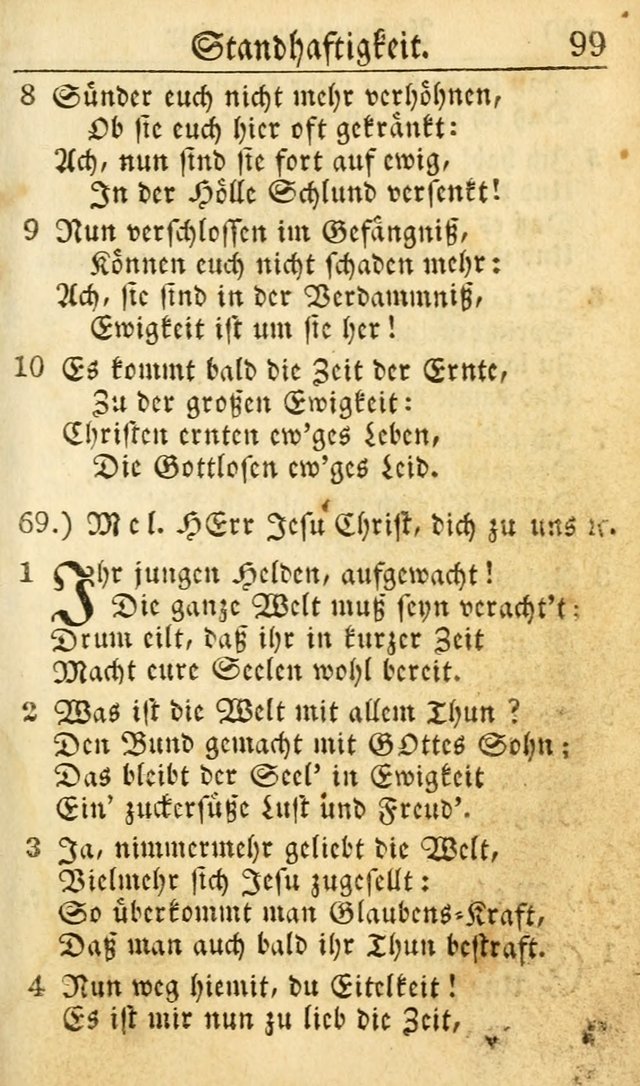 Standhaftigkeit. 99
8 Sünder euch nicht mehr verhöhnen,
Ob sie euch hier oft gekränkt:
Ach, nun sind sie fort auf ewig,
In der Hölle Schlund versenkt!
9 Nun verschlossen im Gefängniß,
Können euch nicht schaden mehr:
Ach, sie sind in der Verdammniß,
Ewigkeit ist um sie her!
10 Es kommt bald die Zeit der Ernte,
Zu der großen Ewigkeit:
Christen ernten ew'ges Leben,
Die Gottlosen ew'ges Leid.
69.) Mel. HErr Jesu Christ, dich zu uns ꝛc.
1 Ihr jungen Helden, aufgewacht!
Die ganze Welt muß seyn veracht't:
Drum eilt, daß ihr in kurzer Zeit
Macht eure Seelen wohl bereit.
2 Was ist die Welt mit allem Thun?
Den Bund gemacht mit GOttes Sohn;
Das bleibt der Seel' in Ewigkeit
Ein' zuckersüße Lust und Freud'.
3 Ja, nimmermehr geliebt die Welt,
Vielmehr sich Jesu zugesellt:
So überkommt man Glaubens-Kraft,
Daß man auch bald ihr Thun bestraft.
4 Nun weg hiemit, du Eitelkeit!
Es ist mir nun zu lieb die Zeit,